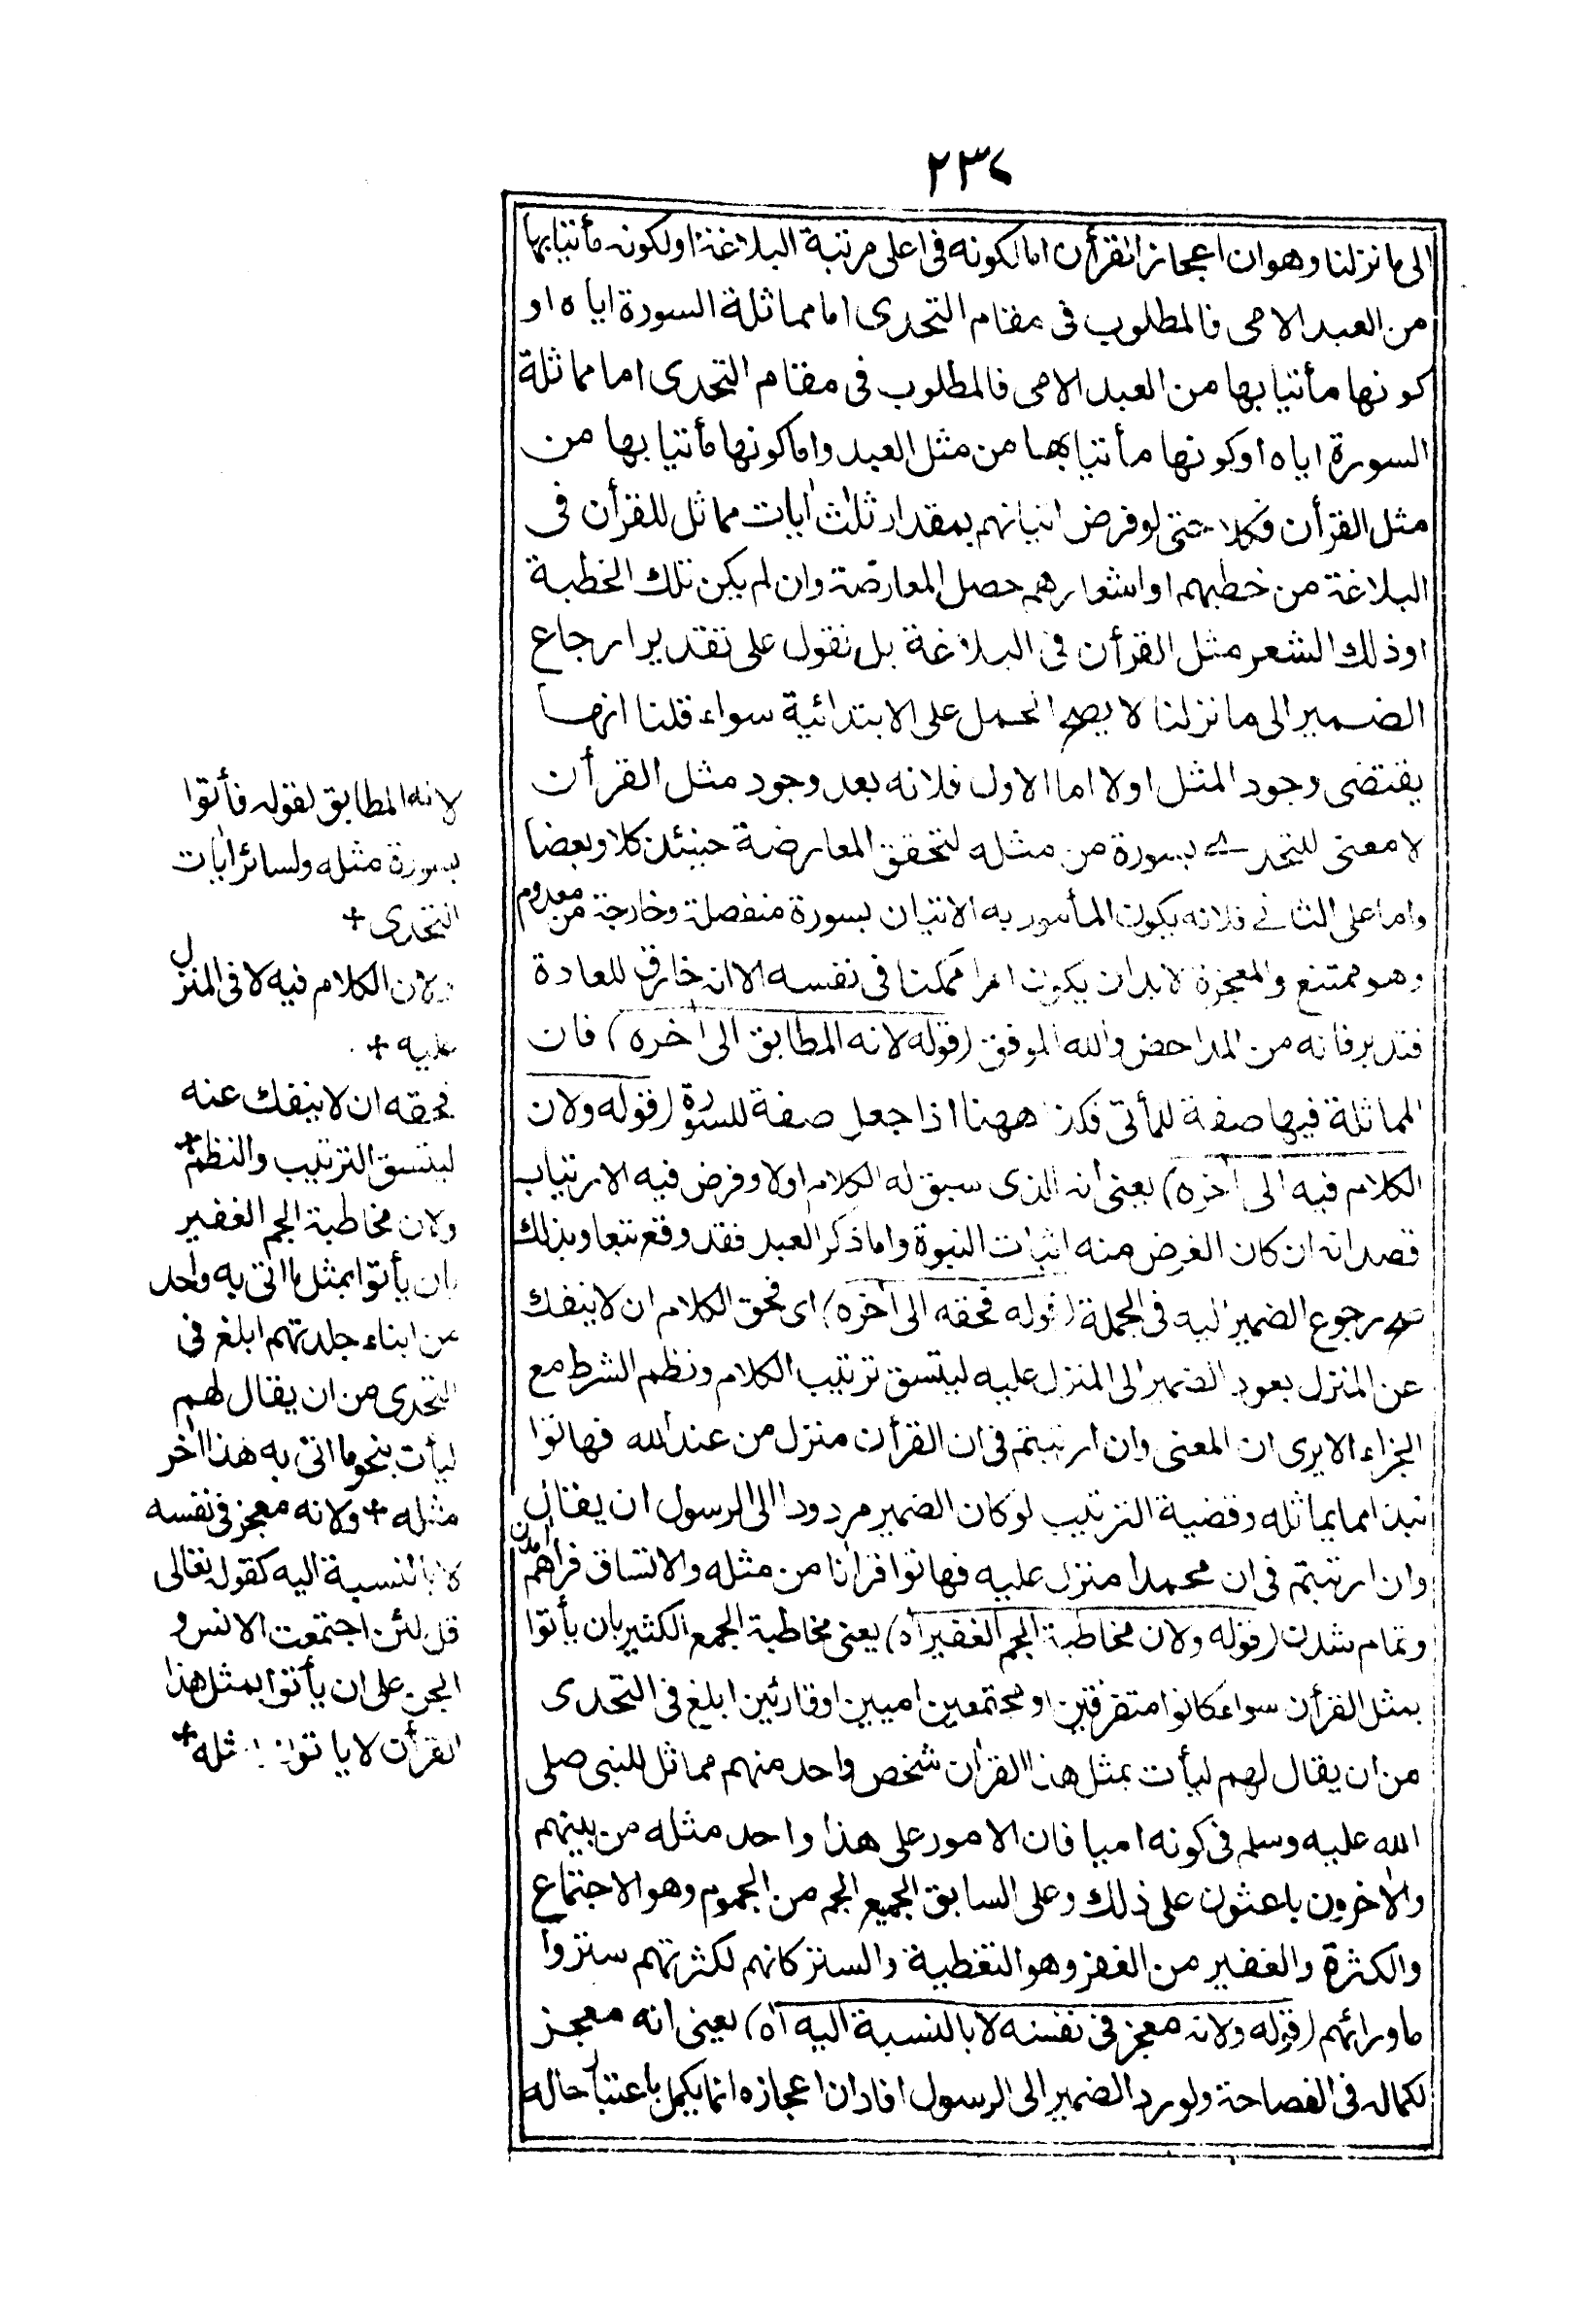 ٢٣٧
الى ما نزلنا وهو ان اعجاز القرأن اما لكونه فى اعلى مرتبة البلاغة او لكونه مأتيا بها
من العبد الامى فالمطلوب فى مقام التحدى اما مماثلة السورة اياه او
كونها مأتيا بها من العبد الامى فالمطلوب فى مقام التحدى اما مماثلة
السورة اياه او كونها مأتيا بها من مثل العبد واما كونها مأتيا بها من
مثل القرأن فكلا حتى لو فرض اتيانهم بمقدار ثلث أيات مماثل للقرأن فى
البلاغة من خطبهم او اشعارهم حصل المعارضة وان لم يكن تلك الخطبة
او ذلك الشعر مثل القرأن فى البلاغة بل نقول على تقدير ارجاع
الضمير الى ما نزلنا لا يصح الحمل على الابتدائية سواء قلنا انها
يقتضى وجود المثل اولا اما الاول فلانه بعد وجود مثل القرأن
لا معنى للتحدى بسورة من مثله لتحقق المعارضة حينئذ كلا وبعضا
واما على الثانى فلانه يكون المأمور به الاتيان بسورة منفصلة وخارجة من معدوم
وهو ممتنع والمعجزة لا بد ان يكون امرا ممكنا فى نفسه الا انه خارق للعادة
فتدبر فانه من المداحض والله الموفق (قوله لانه المطابق الى أخره) فان
المماثلة فيها صفة للمأتى فكذا ههنا اذا جعل صفة للسورة (قوله ولان
الكلام فيه الى أخره) يعنى انه الذى سيق له الكلام اولا وفرض فيه الارتياب
قصدا نه ان كان الغرض منه اثبات النبوة واما ذكر العبد فقد وقع تبعا وبذلك
صح رجوع الضمير اليه فى الجملة (قوله فحقه الى أخره) اى فحق الكلام ان لا ينفك
عن المنزل بعود الضمير الى المنزل عليه ليتسق ترتيب الكلام ونظم الشرط مع
الجزاء الا يرى ان المعنى وان ارتبتم فى ان القرأن منزل من عند الله فهاتوا
نبذا مما يماثله وقضية الترتيب لو كان الضمير مردودا الى الرسول ان يقال
وان ارتبتم فى ان محمدا منزل عليه فهاتوا قرانا من مثله والاتساق فراهم امدن
وتمام شدن (قوله ولان مخاطبة الجم الغفير اه) يعنى مخاطبة الجمع الكثير بان يأتوا
بمثل القرأن سواء كانوا متفرقين او مجتمعين اميين او قارئين ابلغ فى التحدى
من ان يقال لهم ليأت بمثل هذا القرأن شخص واحد منهم مماثل للنبى صلى
الله عليه وسلم فى كونه اميا فان الامور على هذا واحد مثله من بينهم
والأخرون باعثون على ذلك وعلى السابق الجميع الجم من الجموم وهو الاجتماع
والكثرة والغفير من الغفر وهو التغطية والستر كانهم لكثرتهم ستروا
ما ورائهم (قوله ولانه معجز فى نفسه لا بالنسبة اليه اه) يعنى انه معجز
لكماله فى الفصاحة ولو رد الضمير الى الرسول افاد ان اعجازه انما يكمل باعتبار حاله
لانه المطابق لقوله فأتوا
بسورة مثله ولسائر أيات
التحدى +
ولان الكلام فيه لا فى المنزل
عليه +
فحقه ان لا ينفك عنه
ليتسق الترتيب والنظم +
ولان مخاطبة الجم الغفير
بان يأتوا بمثل ما اتى به واحد
من ابناء جلدتهم ابلغ فى
التحدى من ان يقال لهم
ليأت بنحو ما اتى به هذا أخر
مثله + ولانه معجز فى نفسه
لا بالنسبة اليه كقوله تعالى
قل لئن اجتمعت الانس و
الجن على ان يأتوا بمثل هذا
القرأن لا ياتون بمثله +